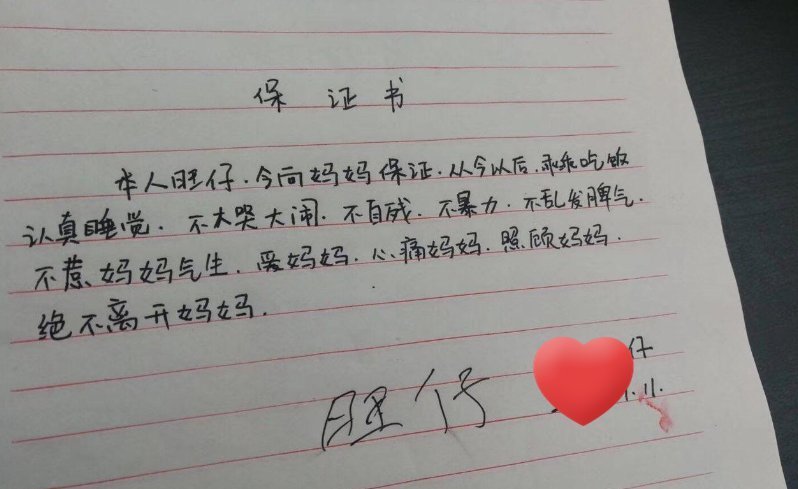 保 证 书
本人旺仔.今向妈妈保证.从今以后.乖乖吃饭
认真睡觉.不大哭大闹.不自残.不暴力.不乱发脾气.
不惹妈妈气生.爱妈妈.心痛妈妈.照顾妈妈.
绝不离开妈妈.
旺仔
仔
1.11.